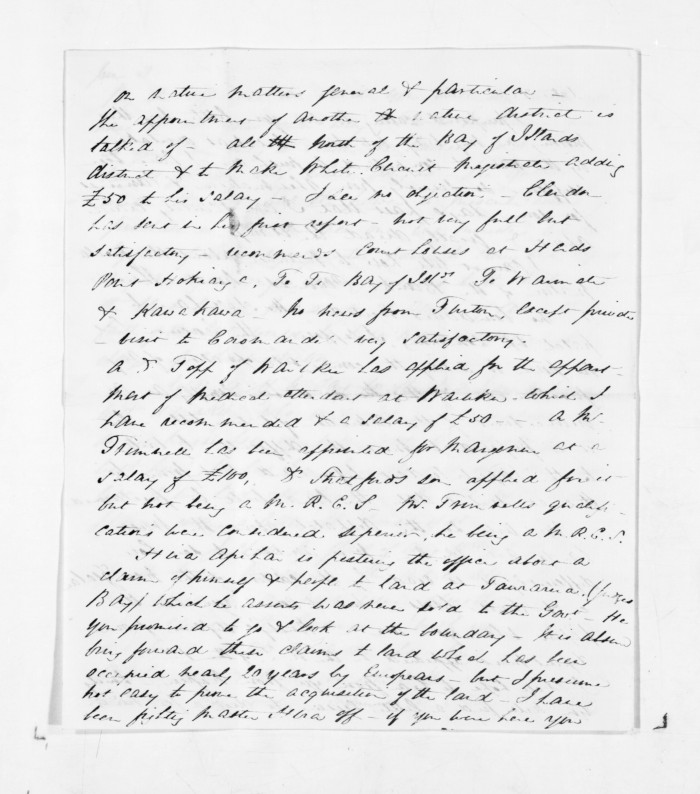 on native matters general & particular –
The appointment of another native district is
talked of – all north of the Bay of Islands
district & to make White, Circuit Magistrate adding
£50 to his salary – I see no objection – Clendon
has sent in his first report – not very full but
satisfactory – recommends Court houses at Herds
Point Hokianga, Te Ti Bay of Islds Te Waimate
& Kawakawa – No news from Turton, except private
– visit to Coromandel very satisfactory.
A Dr Topp of Waiuku has applied for the appoint-
ment of Medical attendant at Waiuku – which I
have recommended & a salary of £50 – – A Mr
Trimnell has been appointed for Mangonui at a
salary of £100, Dr son applied for it
but not being a M.R.C.S. Mr Trimnells qualifi-
cations were considered superior, he being a M.R.C.S.
Hira is pestering the office about a
claim of himself & people to land at
Bay) which he asserts was never sold to the Govt He
you promised to go & look at the boundary – It is absurd
bring forward these claims to land which has been
occupied nearly 20 years by Europeans – but I presume
not easy to prove the acquisition of the land – I have
been putting Master Hira off – if you were here you